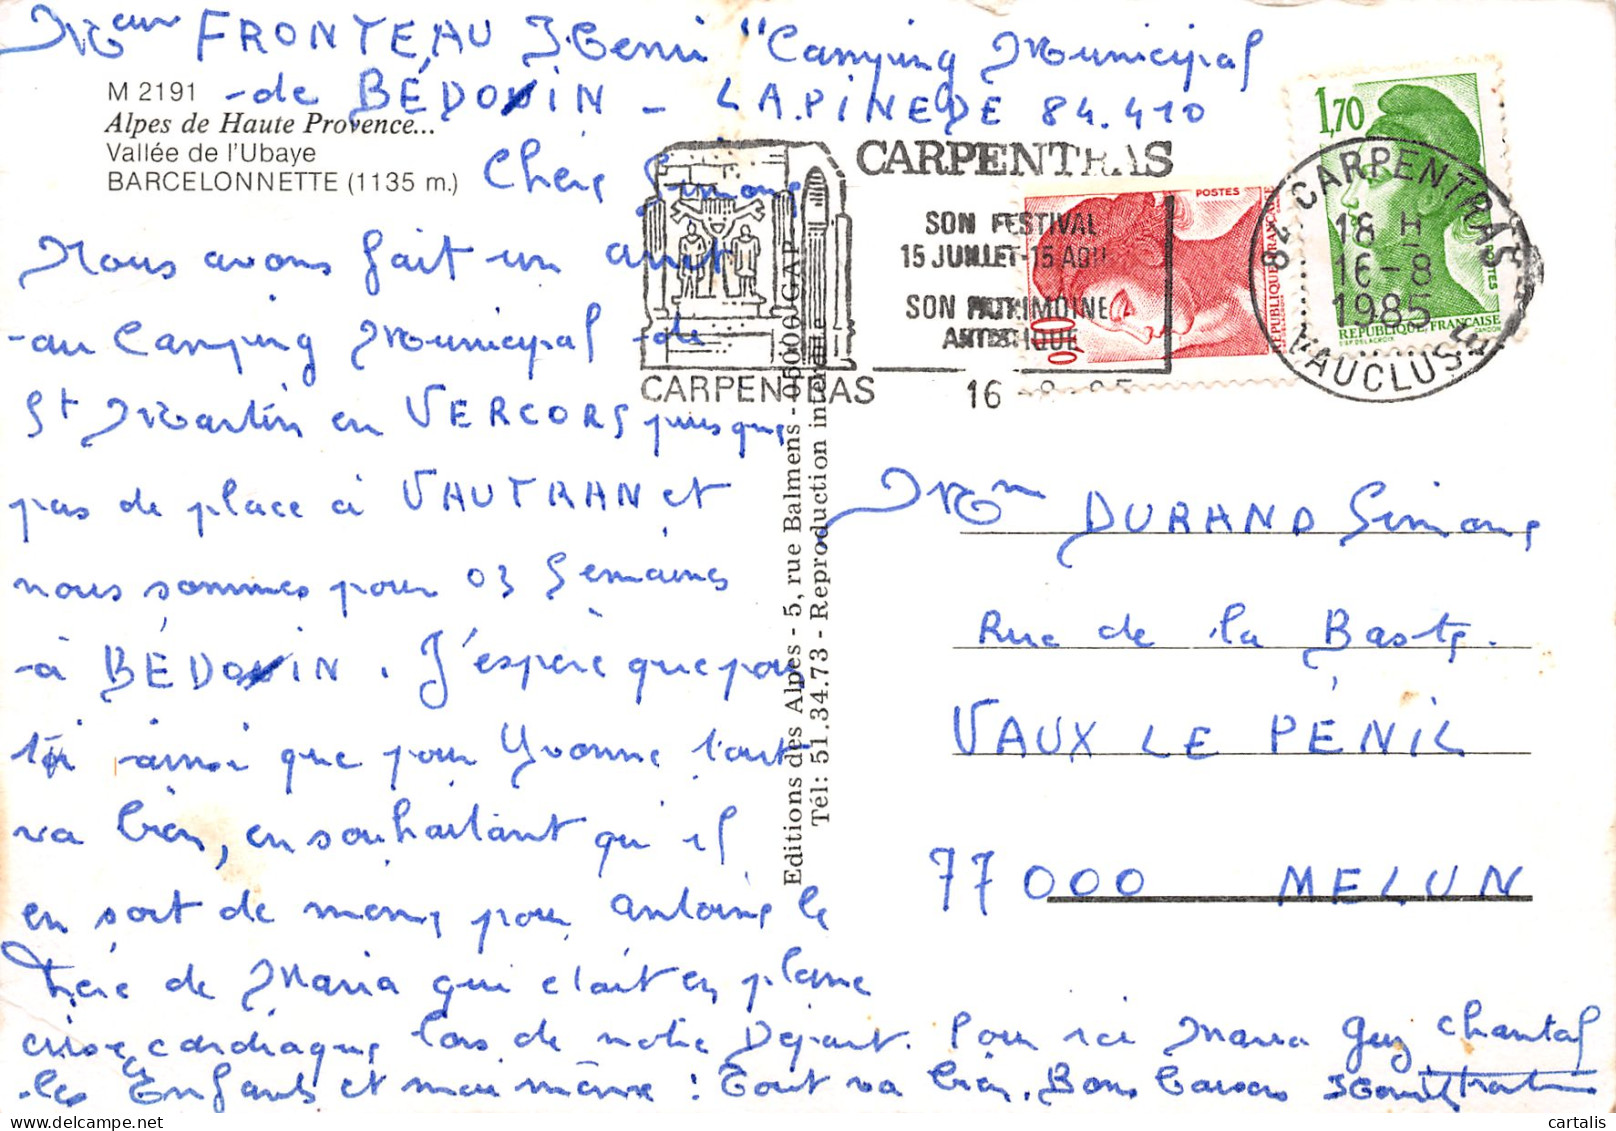 Mr FRONTEAU Henri "Camping Municipal
de BÉDOIN - LAPINEDE 84.410
M 2191
Alpes de Haute Provence...
Vallée de l'Ubaye
BARCELONNETTE (1135 m.)
Chère Simone
Nous avons fait un arrêt
au Camping Municipal de
St Martin en VERCORS puisque
pas de place à VAUTRAN et
nous sommes pour 03 Semaines
à BÉDOIN. J'espère que pour
toi ainsi que pour Yvonne tout
va bien, en souhaitant qu'il
en soit de même pour Antoine le
Père de Maria qui était en pleine
crise cardiaque lors de notre Départ. Pour ici Maria Guy Chantal
les Enfants et moi même : Tout va bien. Bons baisers
CARPENTRAS
SON FESTIVAL
15 JUILLET-15 AOUT
SON PATRIMOINE
ARTISTIQUE
CARPENTRAS
16 -8-85
POSTES
REPUBLIQUE FRANÇAISE
0,10
1,70
POSTES
REPUBLIQUE FRANÇAISE
CARPENTRAS
18 H
16-8
1985
28 VAUCLUSE
Editions des Alpes - 5, rue Balmens - 05000 GAP
Tél: 51.34.73 - Reproduction interdite
Mme DURAND Simone
Rue de la Baste.
VAUX LE PÉNIL
77000 MELUN
cartalis